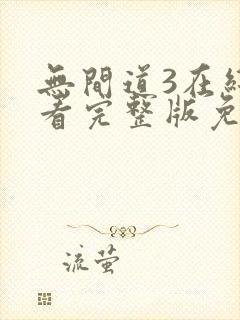 無間道3在線
看完整版免
流萤